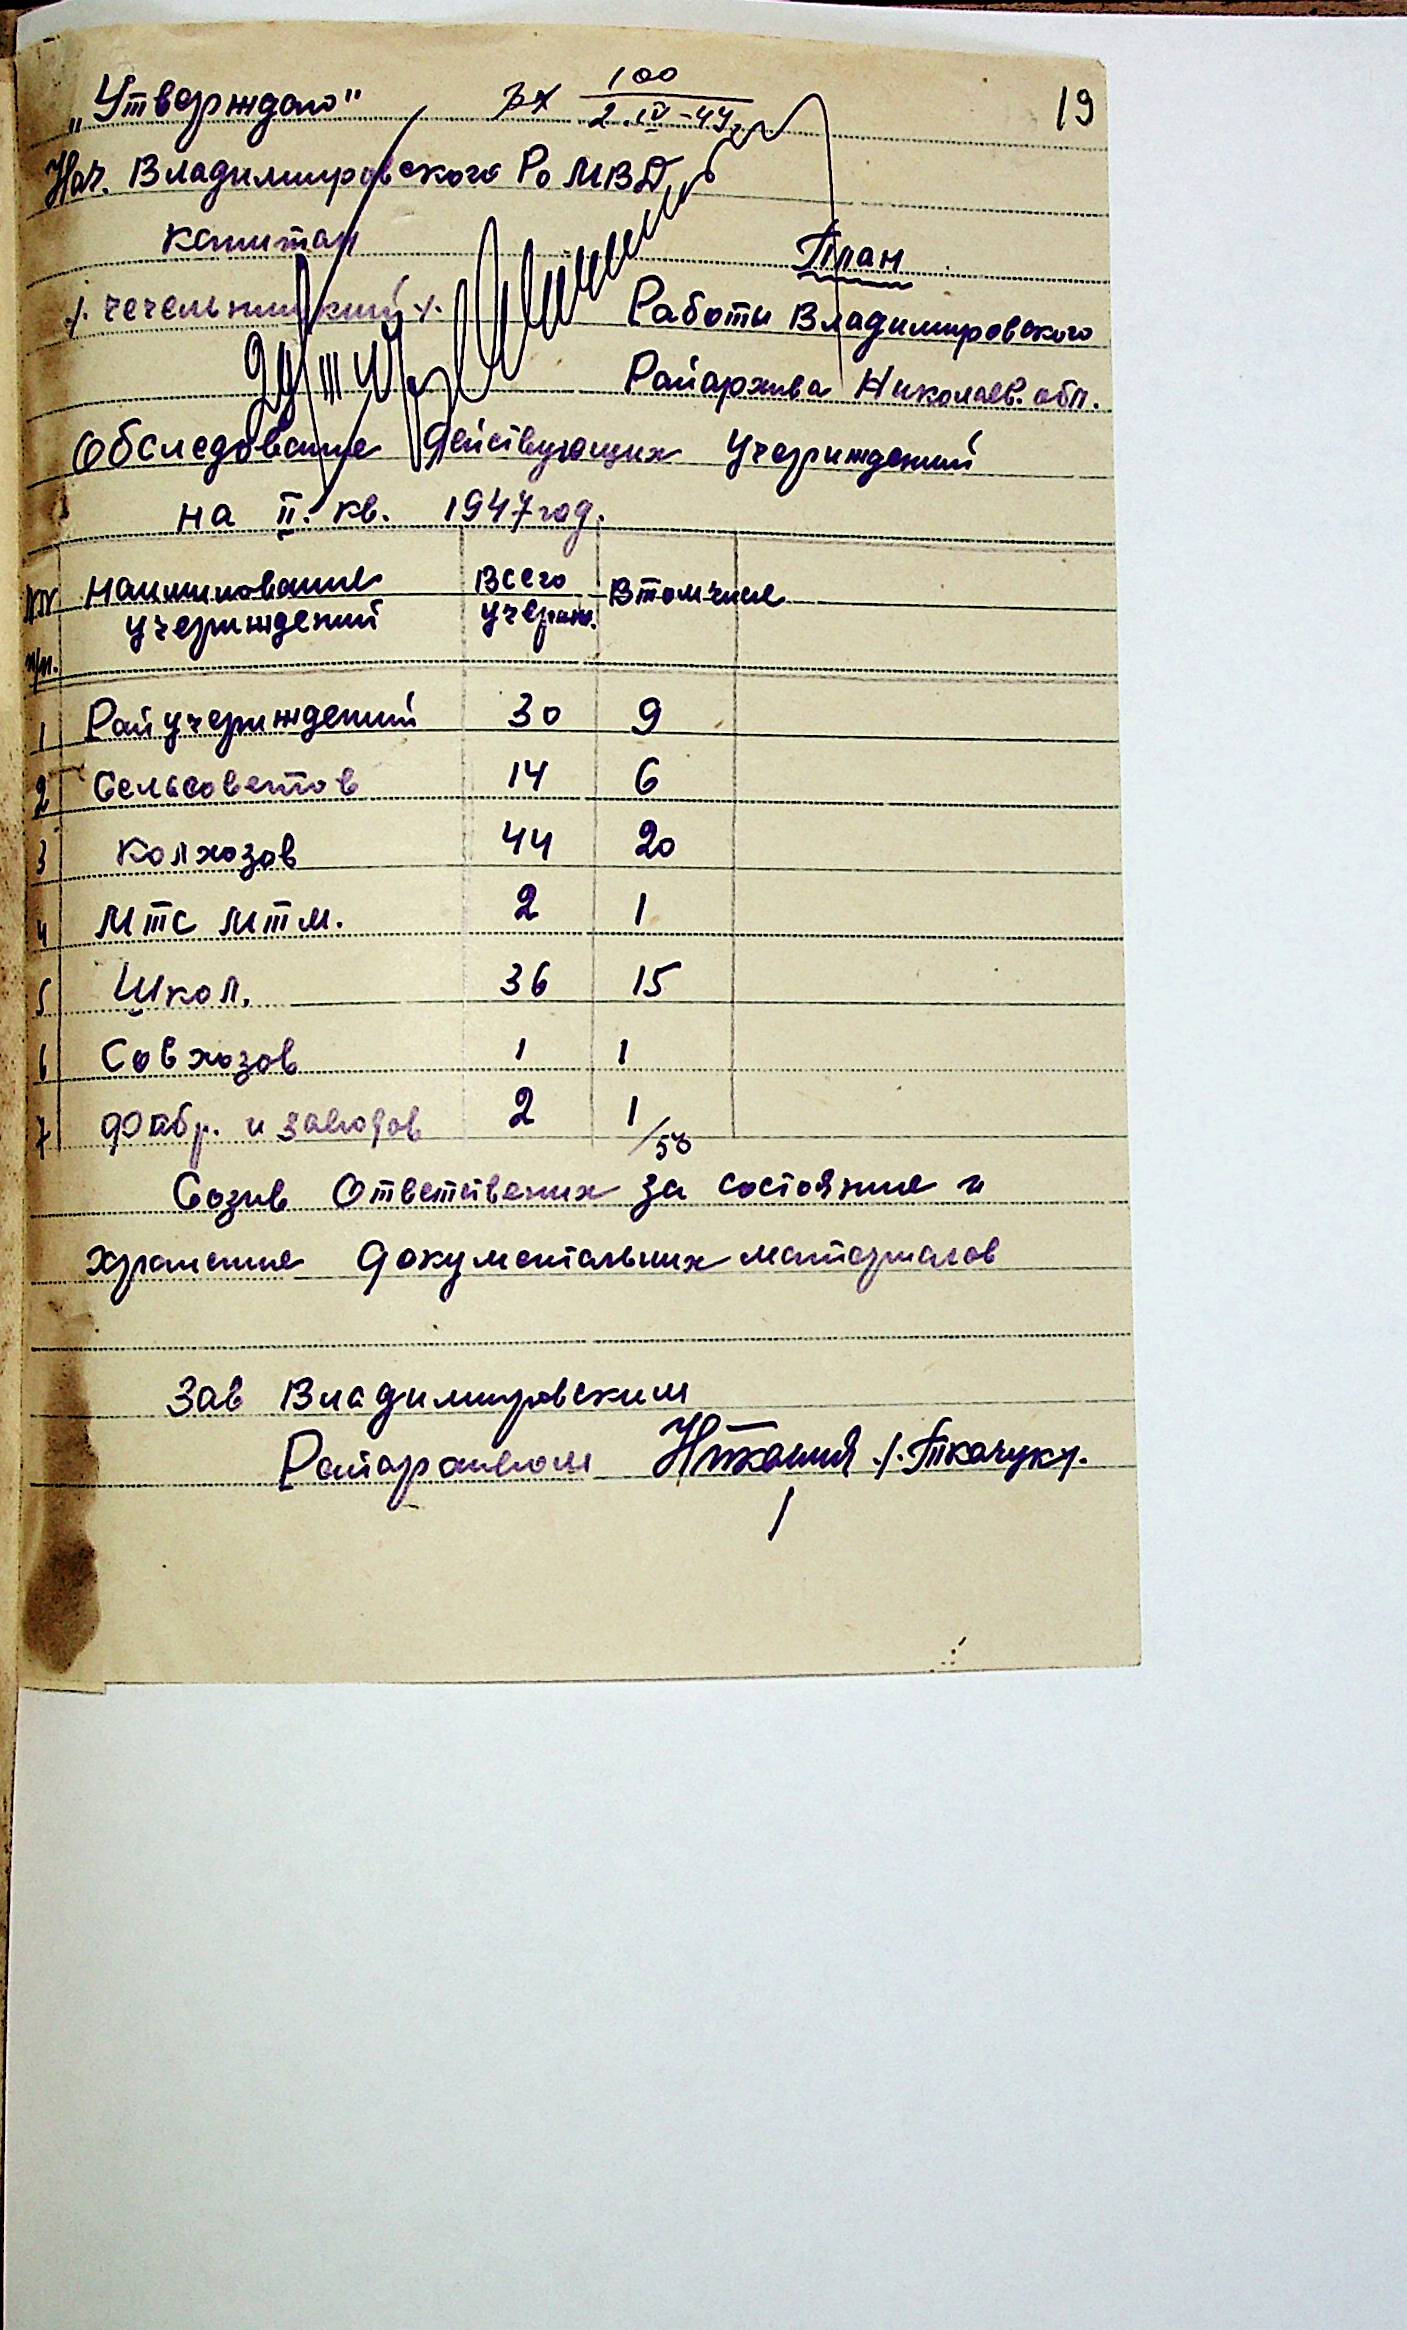 „Утверждаю"
Вх 100
2.IV-47г
19
Нач. Владимировского Ро МВД
капитан
/. Чечельницкий /.
29/III 47г
План
Работи Владимировского
Райархива Николаев. обл.
Обследование Действующих Учериждений
на II. кв. 1947 год.
NN п/п. Наиминование учериждений Всего учериж. В том числе
1 Райучериждений 30 9
2 Сельсоветов 14 6
3 Колхозов 44 20
4 МТС МТМ. 2 1
5 Школ. 36 15
6 Совхозов 1 1
7 Фабр. и заводов 2 1
/53
Созив Ответствених за состояние и
хранение Документальних материалов
Зав Владимировским
Райархивом /. Ткачук /.